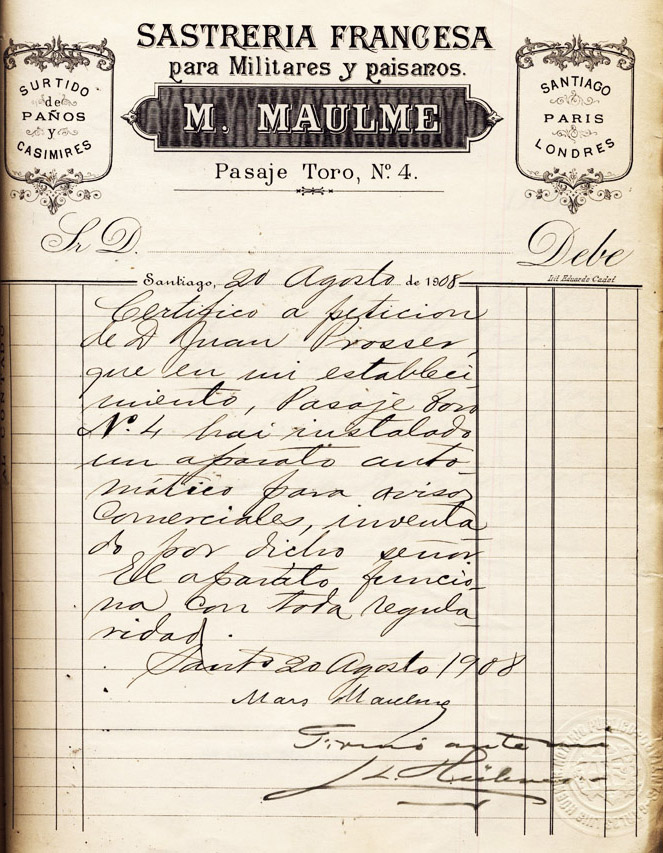 SASTRERIA FRANCESA
para Militares y paisanos.
SURTIDO
de
PAÑOS
y
CASIMIRES
M. MAULME
SANTIAGO
PARIS
LONDRES
Pasaje Toro, Nº 4.
Sr D.
Debe
Lit Eduardo Cadot
Santiago, 20 Agosto de 1908
Certifico a peticion
de D Juan Prosser,
que en mi estableci-
miento, Pasaje Toro
Nº 4 hai instalado
un aparato auto-
mático para avisos
comerciales, inventa
do por dicho señor.
El aparato funcio-
na con toda regula-
ridad.
Santº 20 Agosto 1908
Maulme
Firmó ante mi
AL CONTADO